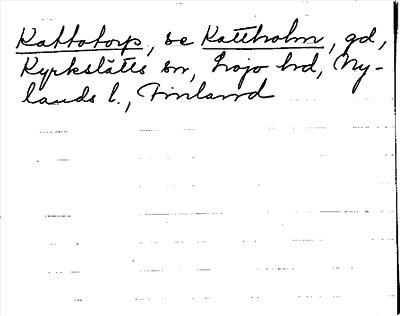 Kattatorp, se Kattholm, gd,
Kyrkslätts sn, Lojo hd, Ny-
lands l., Finland